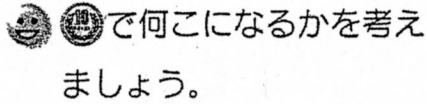 で何こになるかを考え
ましょう。